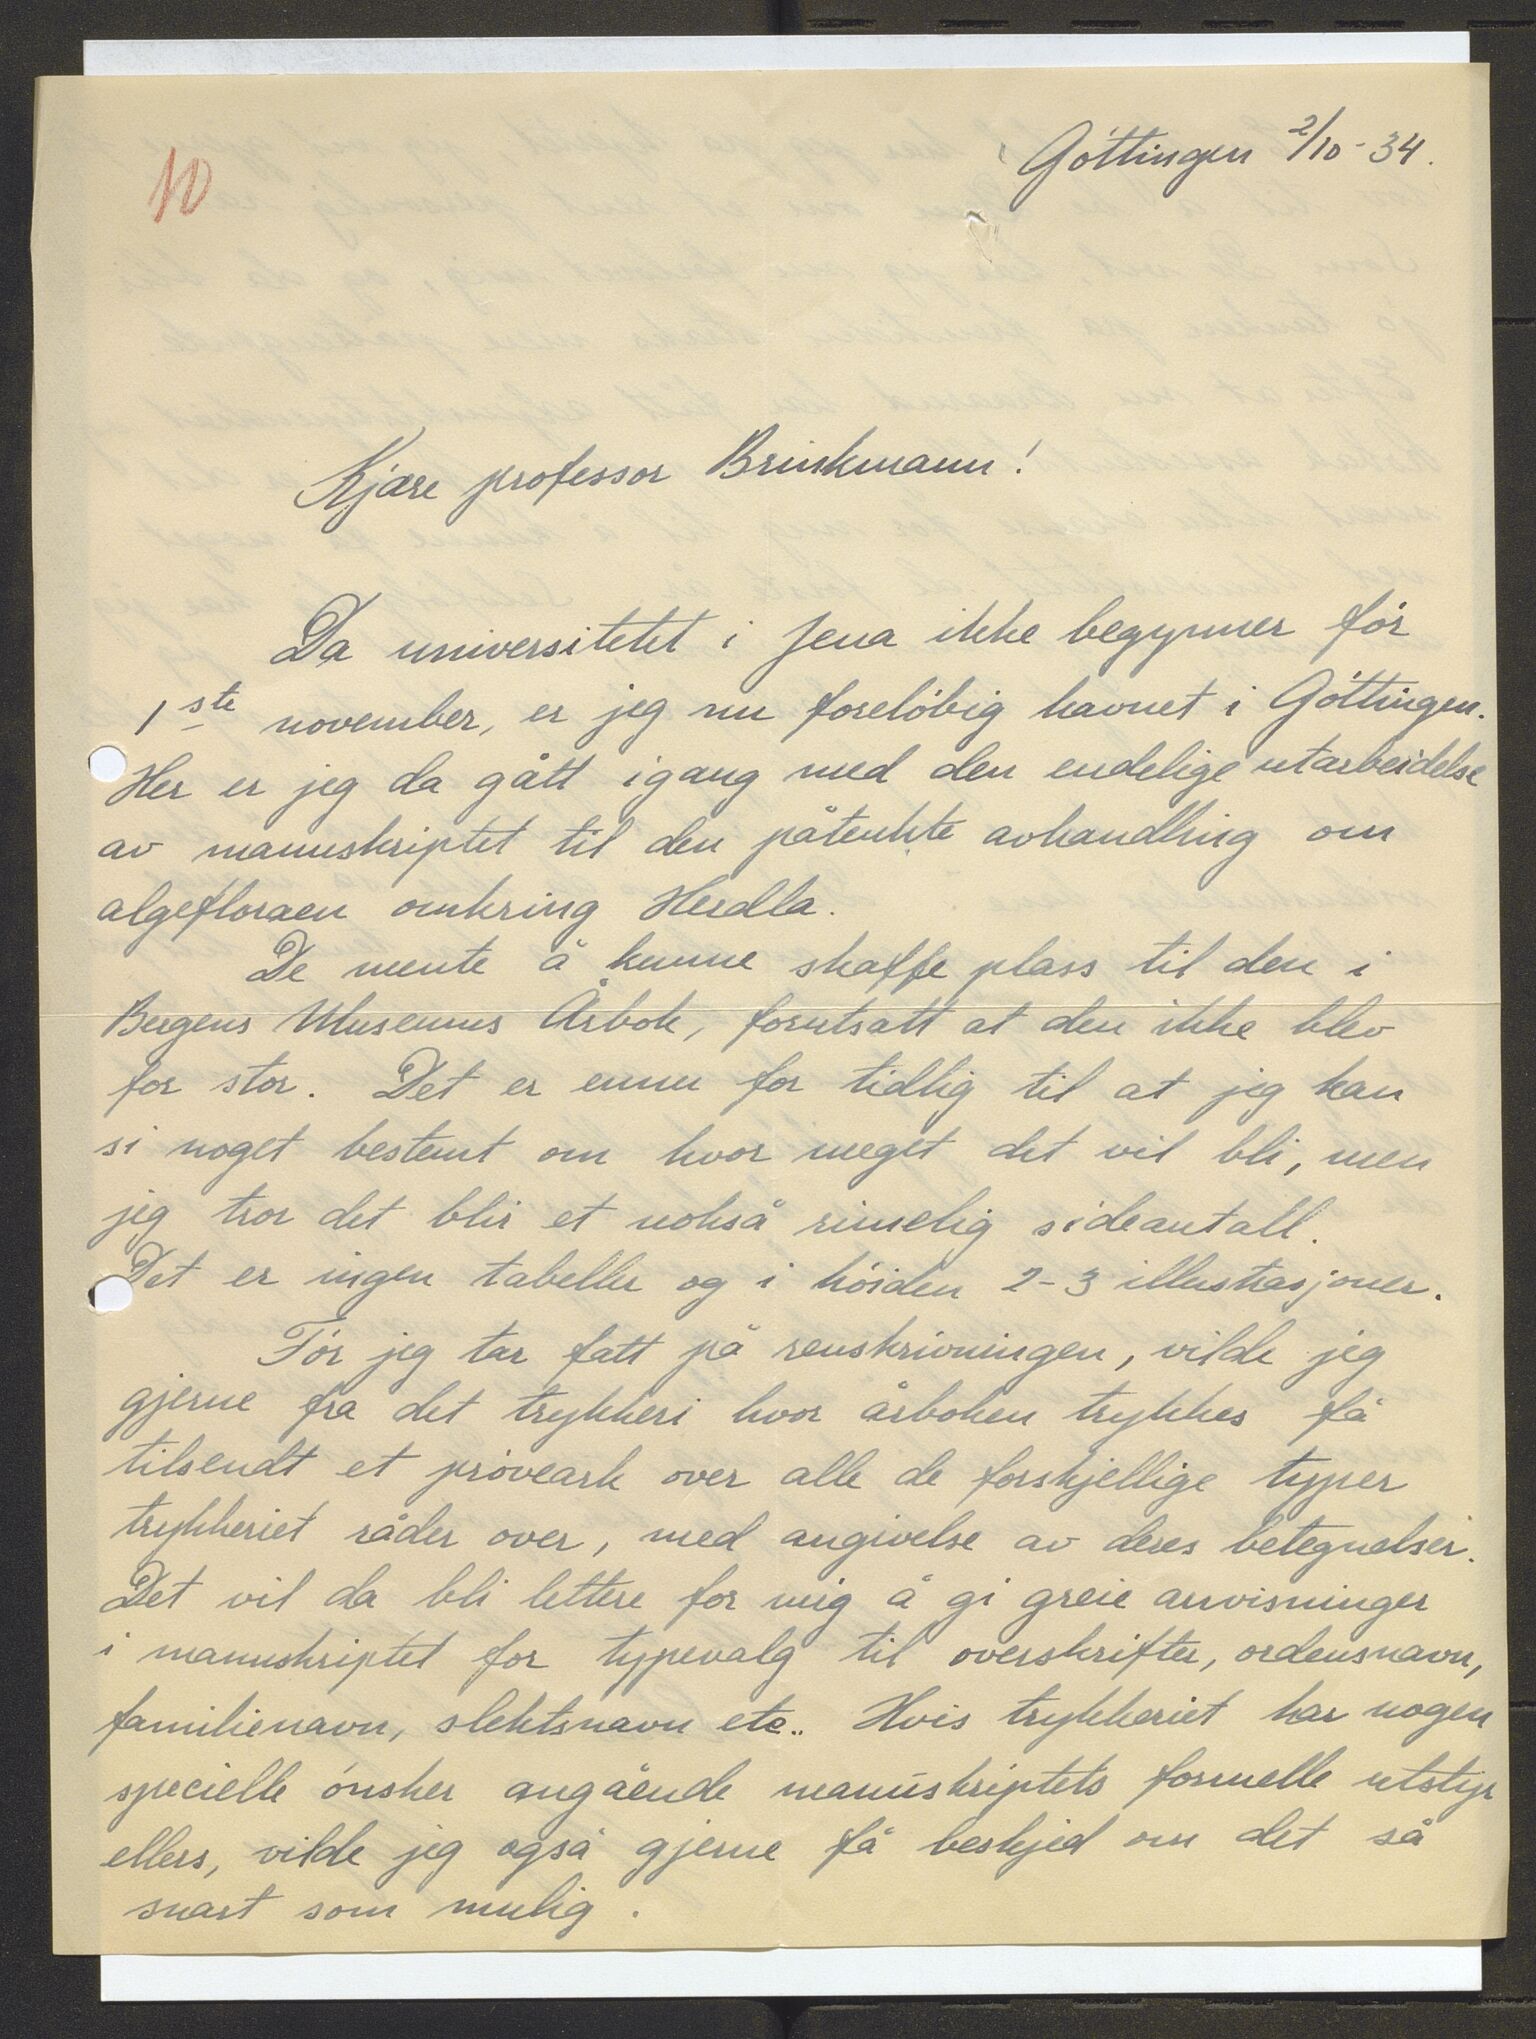 10
Göttingen 2/10-34.
Kjære professor Brinkmann!
Da universitetet i Jena ikke begynner før
1ste november, er jeg nu foreløbig havnet i Göttingen.
Her er jeg da gått igang med den endelige utarbeidelse
av manuskriptet til den påtenkte avhandling om
algefloraen omkring Herdla.
De mente å kunne skaffe plass til den i
Bergens Museums Årbok, forutsatt at den ikke blev
for stor. Det er ennu for tidlig til at jeg kan
si noget bestemt om hvor meget det vil bli, men
jeg tror det blir et nokså rimelig sideantall.
Det er ingen tabeller og i høiden 2-3 illustrasjoner.
Før jeg tar fatt på renskrivningen, vilde jeg
gjerne fra det trykkeri hvor årboken trykkes få
tilsendt et prøveark over alle de forskjellige typer
trykkeriet råder over, med angivelse av deres betegnelser.
Det vil da bli lettere for mig å gi greie anvisninger
i manuskriptet for typevalg til overskrifter, ordensnavn,
familienavn, slektsnavn etc.. Hvis trykkeriet har nogen
specielle ønsker angående manuskriptets formelle utstyr
ellers, vilde jeg også gjerne få beskjed om det så
snart som mulig.